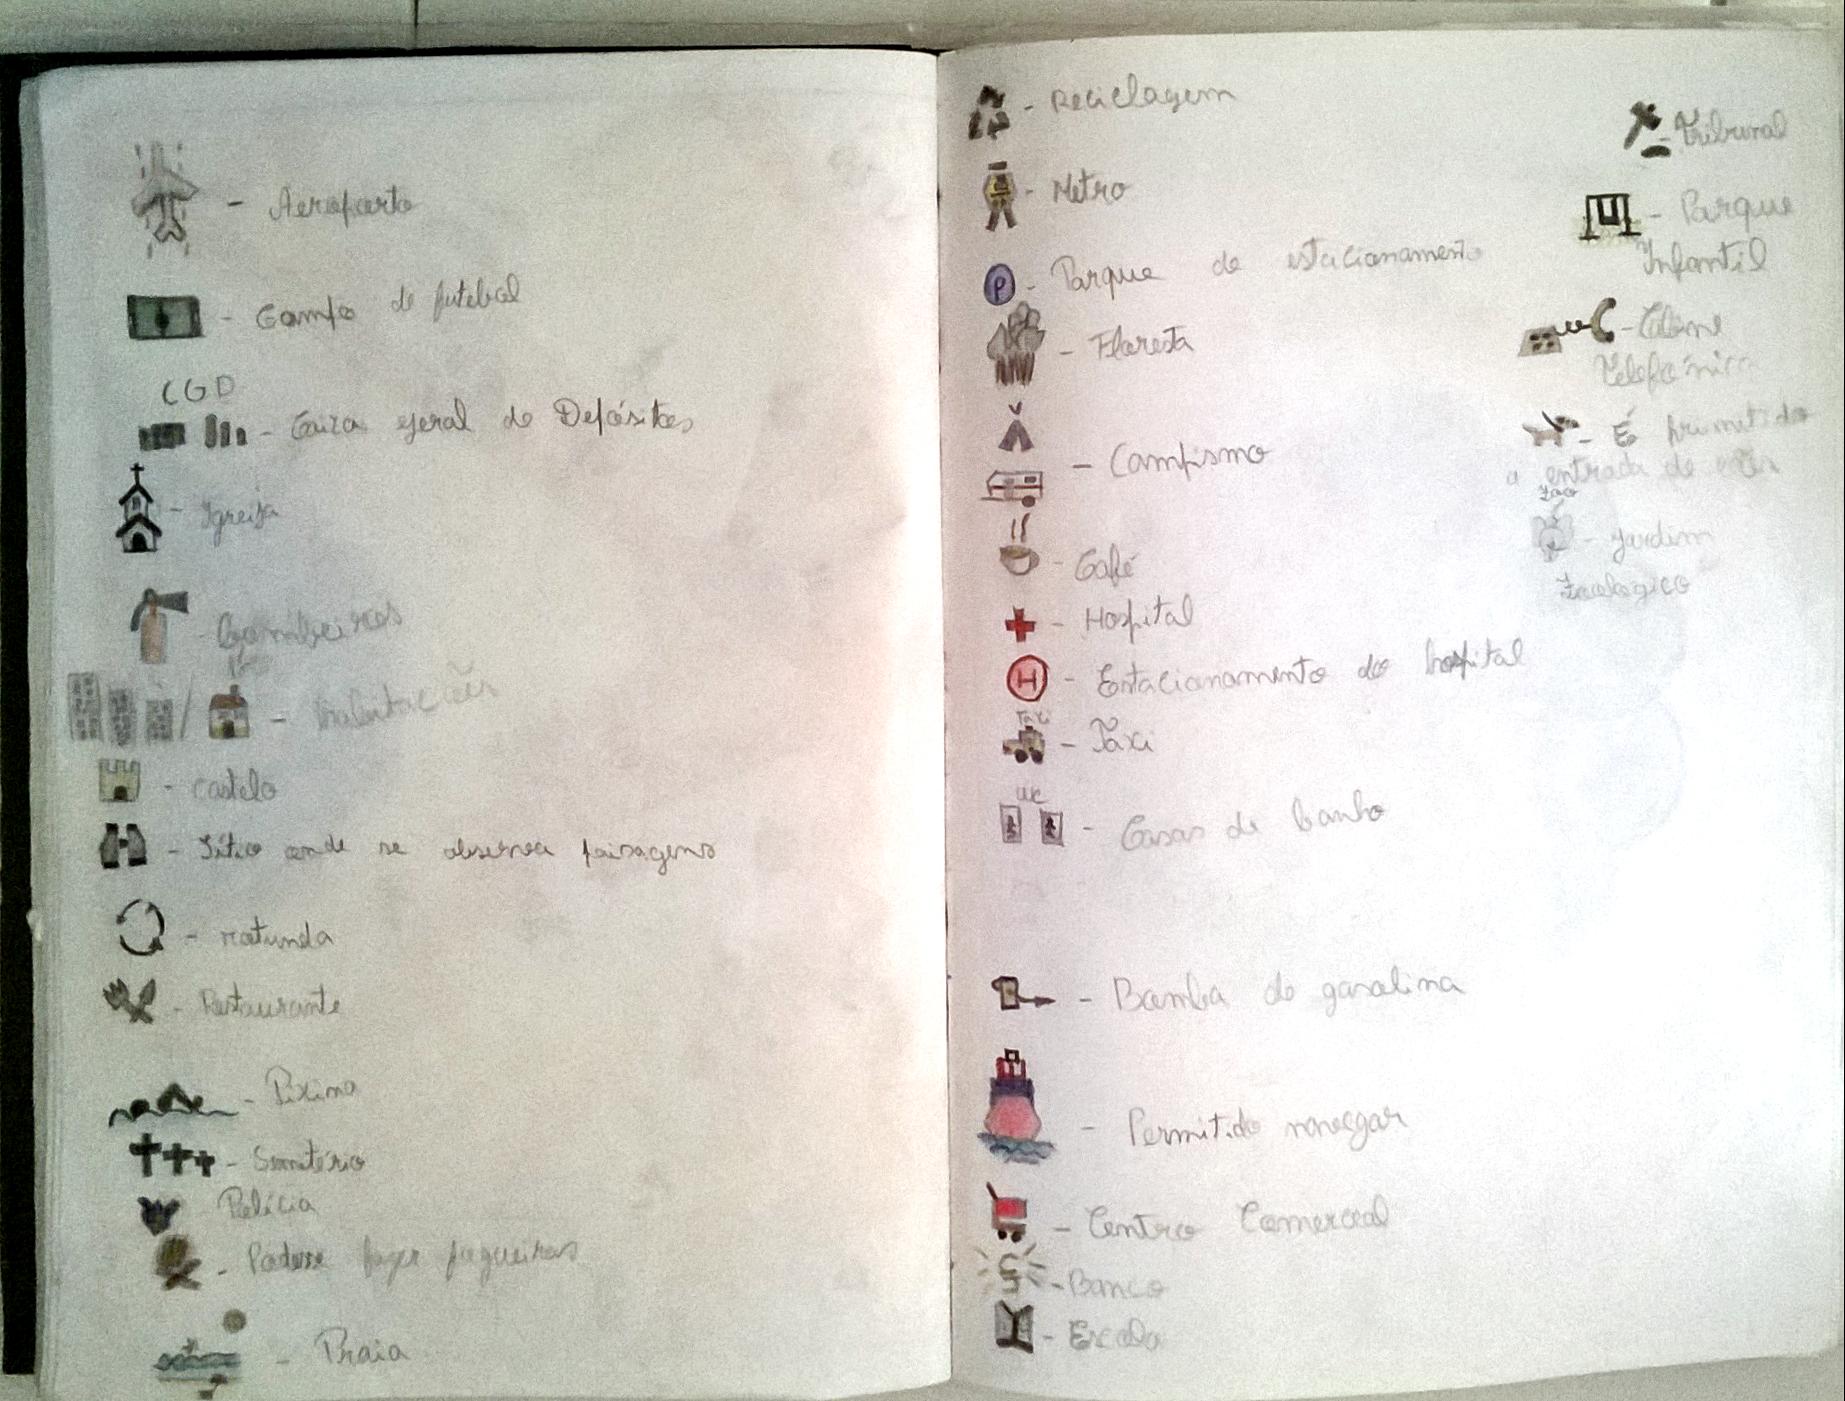 - Aeroporto
- Campo de futebol
CGD
- Caixa geral de Depósitos
- Igreja
- Bombeiros
- habitações
- castelo
- Sítio onde se observa paisagens
- rotunda
- Restaurante
- Pixina
- Semitério
Polícia
- Podesse fazer fogueiras
- Praia
- Reciclagem
- Metro
P - Parque de estacionamento
- Floresta
- Campismo
- Café
- Hospital
H - Estacionamento do hospital
Taxi
- Táxi
WC
- Casas de banho
- Bomba de gasolina
- Permitido navegar
- Centro Comercial
- Banco
- Escola
- Tribunal
- Parque
Infantil
- Cabine
Telefónica
- É permitido
a entrada de cães
Zoo
- Jardim
Zoologico